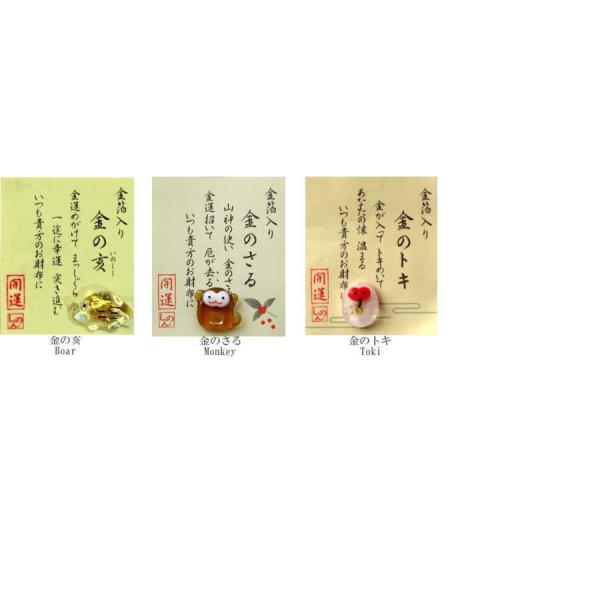 金箔入り
金の亥
いのしし
金運めがけて まっしぐら
一途に幸運 突き進む
いつも貴方のお財布に
開運
金の亥
Boar
金箔入り
金のさる
山神の使い 金のさる
金運招いて 厄が去る
いつも貴方のお財布に
開運
金のさる
Monkey
金箔入り
金のトキ
金が入って トキめいて
あなたの懐 温まる
いつも貴方のお財布に
開運
金のトキ
Toki